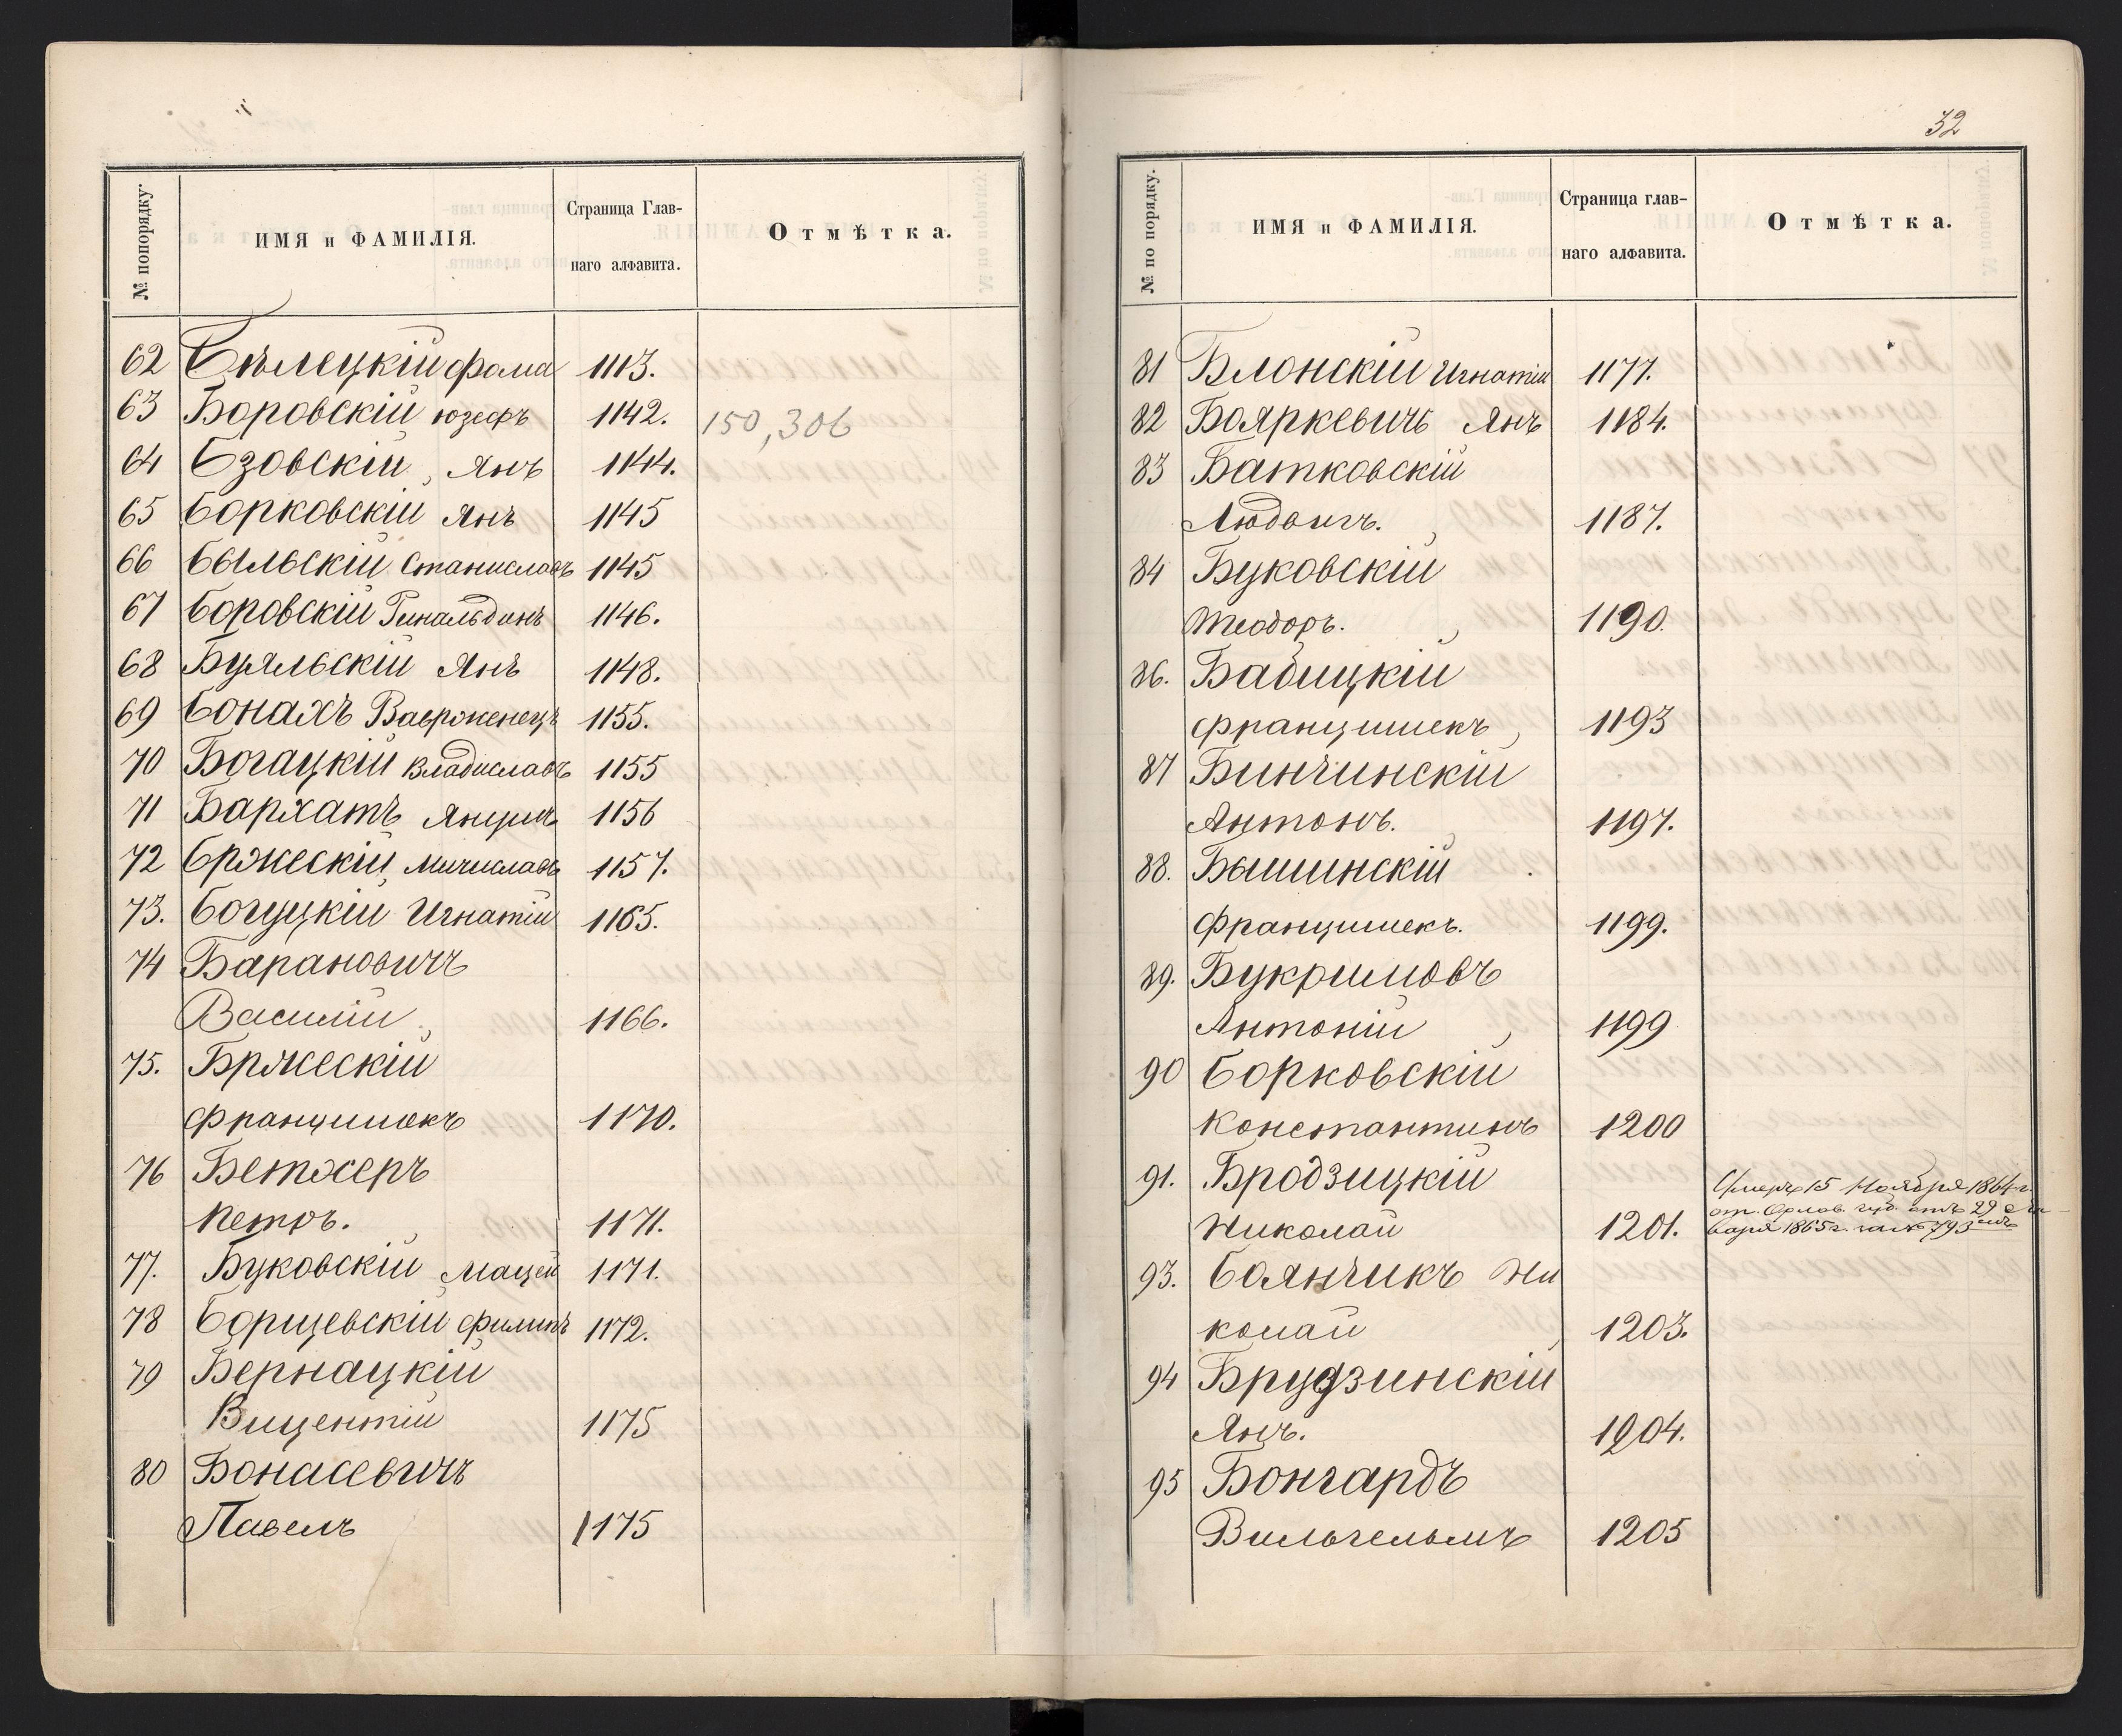 № попорядку.
ИМЯ и ФАМИЛІЯ.
Страница Глав-
наго алфавита.
Отмѣтка.
62 Бѣлецкій Фома 1113.
63 Боровскій юзефъ 1142. 150,306
64 Бзовскій, Янъ 1144.
65 Борковскій Янъ 1145
66 Быльскій Станиславъ 1145
67 Боровскій 1146.
68 Буяльскій Янъ 1148.
69 Бонахъ 1155.
70 Богацкій Владиславъ 1155
71 Бархатъ 1156
72 Бржескій Мичиславъ 1157.
73. Богуцкій Игнатій 1165.
74 Барановичъ
Василій 1166.
75. Бржескій
Францишекъ 1170.
76 Бетхеръ
Петръ. 1171.
77. Буковскій Мацей 1171.
78 Борщевскій Филипъ 1172.
79 Бернацкій
Вицентій 1175
80 Бонасевичъ
Павелъ 1175
32
№ по порядку.
ИМЯ и ФАМИЛІЯ.
Страница глав-
наго алфавита.
Отмѣтка.
81 Блонскій Игнатій 1177.
82 Бояркевичъ Янъ 1184.
83 Батковскій
Людвигъ. 1187.
84 Буковскій
Теодоръ. 1190.
86. Бабицкій
Францишекъ 1193
87 Бинчинскій
Антонъ. 1197.
88. Бышинскій
Францишекъ. 1199.
89. Букримовъ
Антоній 1199
90 Борковскій
Константинъ 1200
91. Бродзицкій
Николай 1201.
Умеръ 15 Ноября 1864 г
от. Орлов. губ. отъ 29 Ян-
варя 1865 г. за № 793
93. Боянчикъ Ни
колай 1203.
94 Брудзинскій
Янъ. 1204.
95 Бонгардъ
Вильгельмъ 1205